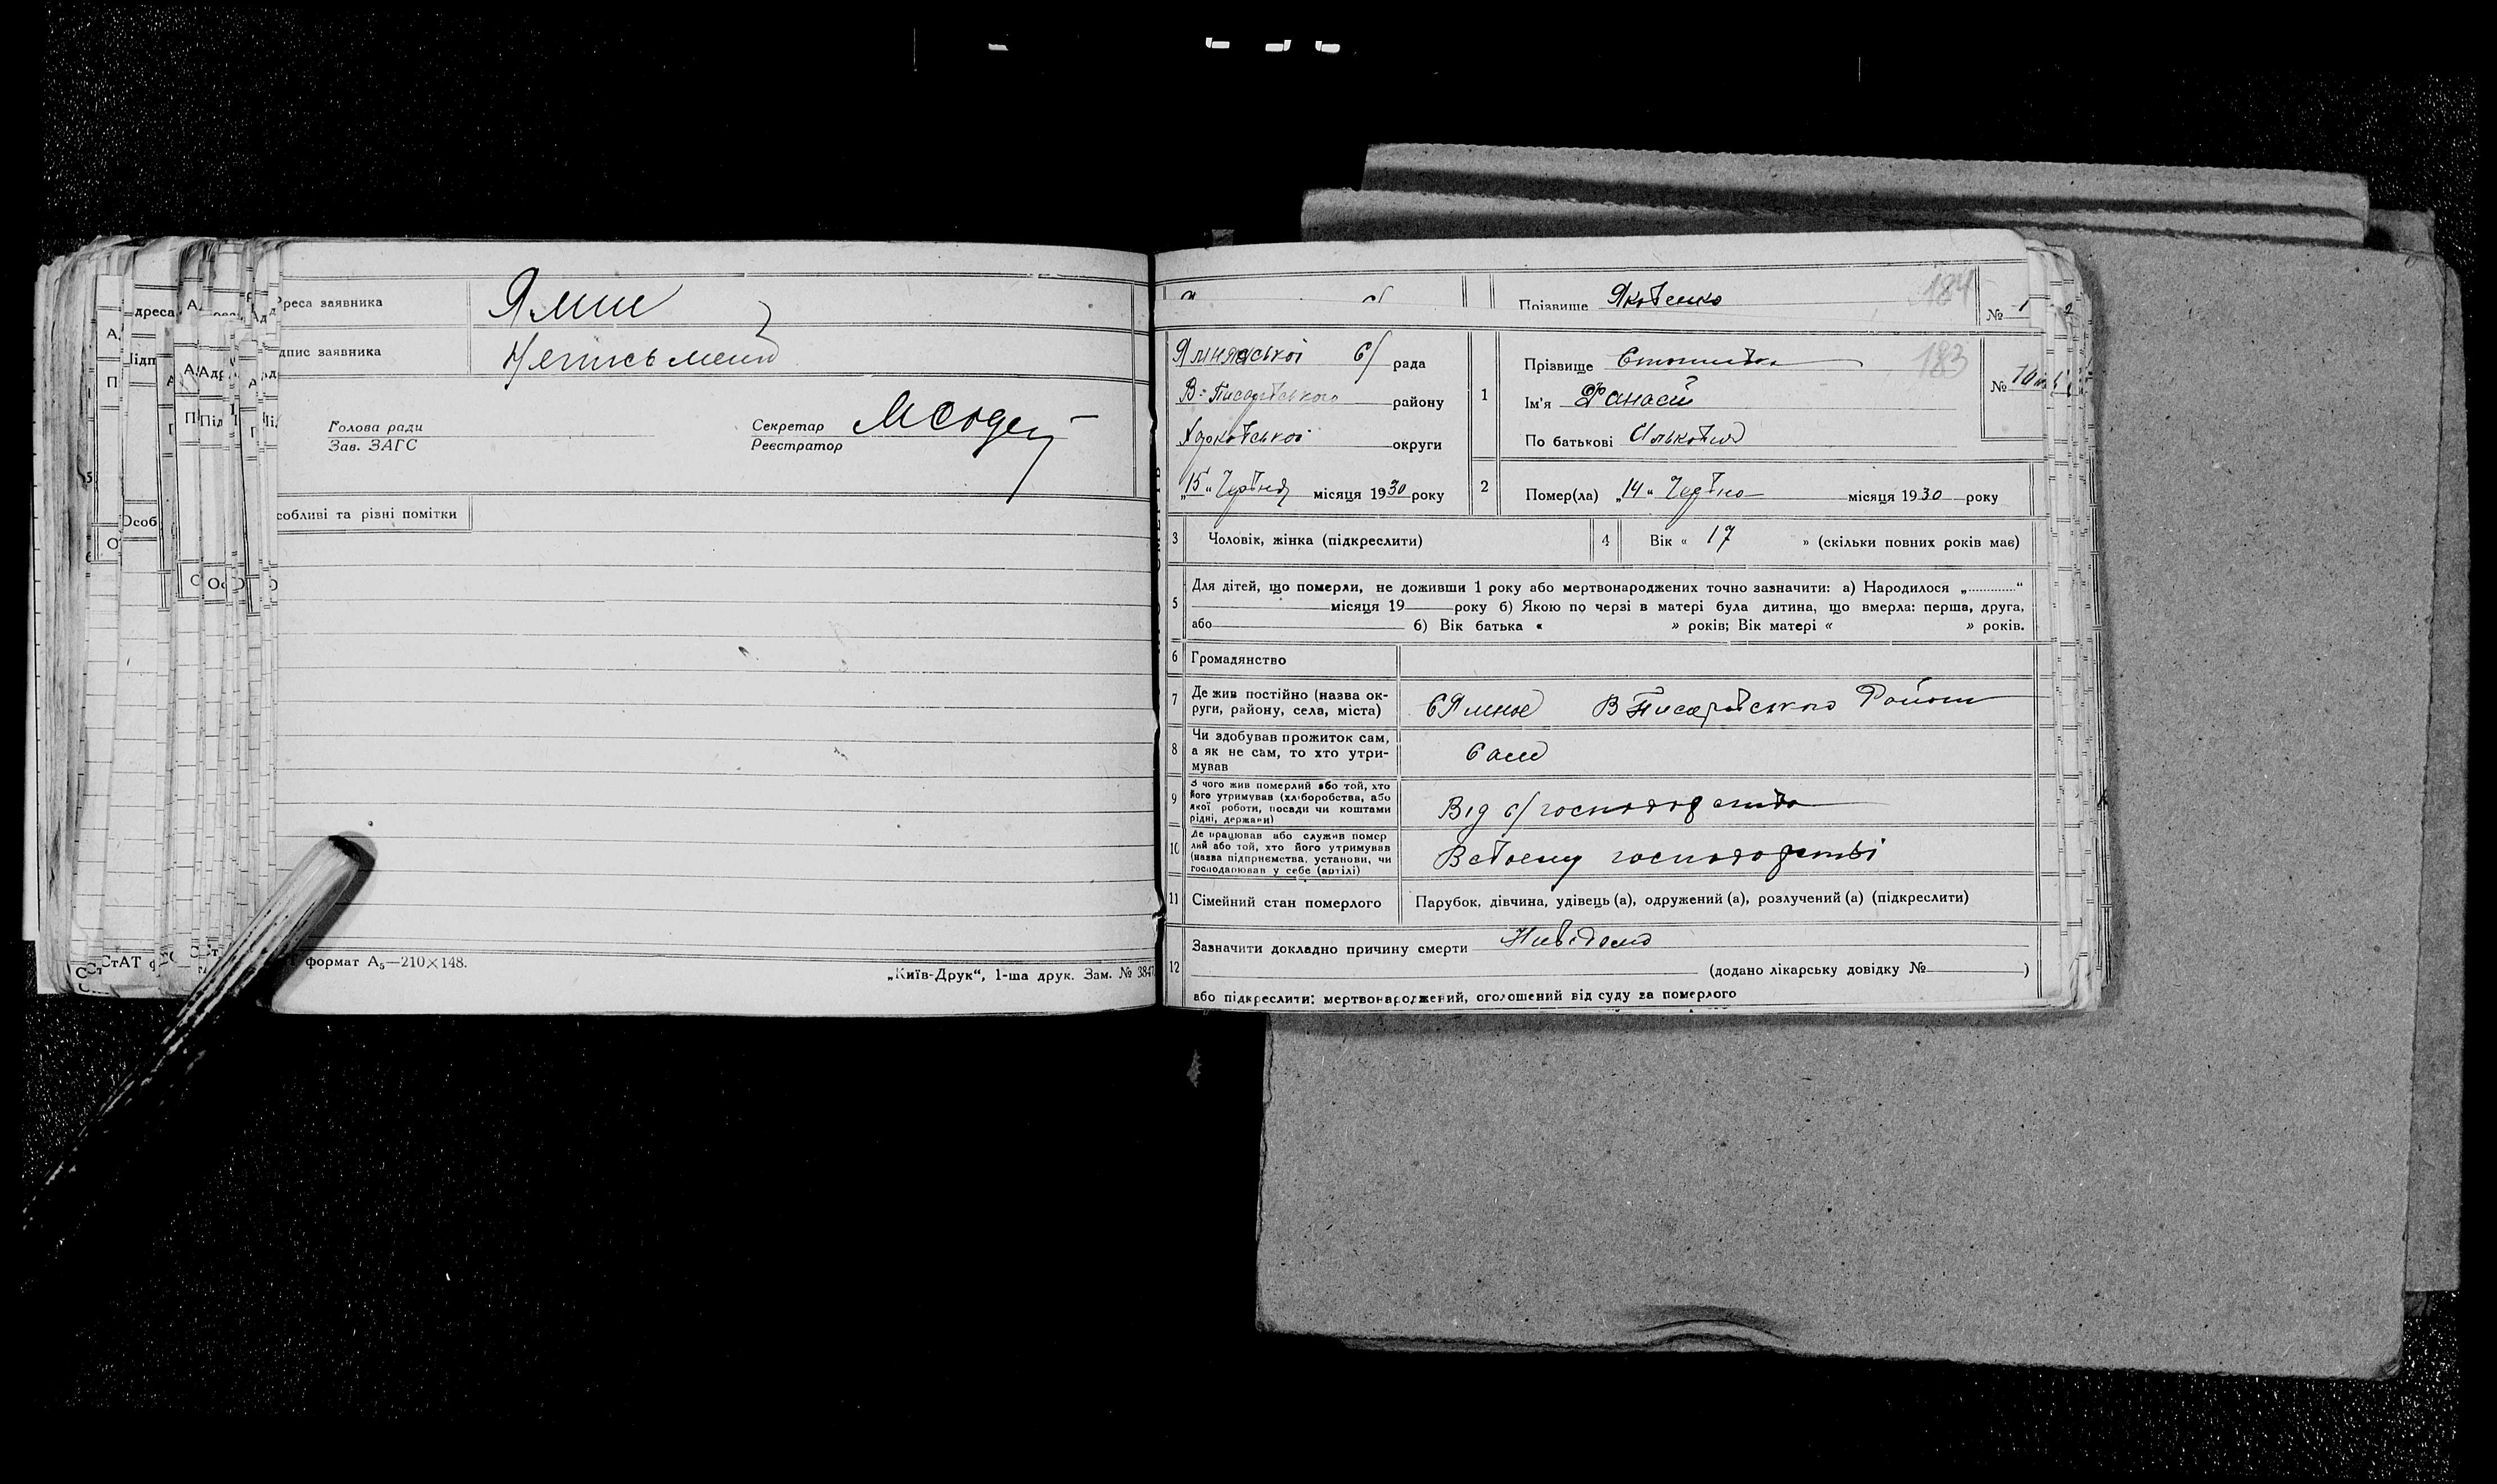 Адреса заявника Ямне
Підпис заявника Неписьмений
Голова ради
Зав. ЗАГС
Секретар
Реєстратор
Особливі та різні помітки
формат А5—210×148.
„Київ-Друк“, 1-ша друк. Зам. № 3847
Прізвище Яковенко 184 № 1
Ямнянської с/ рада
В-Писарівського району
Харківської округи
„15“ Червня місяця 1930 року
1 Прізвище 183 №
Ім'я Фанасій
По батькові Ількович
2 Помер(ла) „14“ Червня місяця 1930 року
3 Чоловік, жінка (підкреслити)
4 Вік « 17 » (скільки повних років має)
5 Для дітей, що померли, не доживши 1 року або мертвонароджених точно зазначити: а) Народилося „..............“
місяця 19 року б) Якою по черзі в матері була дитина, що вмерла: перша, друга,
або б) Вік батька « » років; Вік матері « » років.
6 Громадянство
7 Де жив постійно (назва ок-
руги, району, села, міста) с Ямное В Писарівського Району
8 Чи здобував прожиток сам,
а як не сам, то хто утри-
мував Сам
9 З чого жив померлий або той, хто
його утримував (хліборобства, або
якої роботи, посади чи коштами
рідні, держави) Від с/господарства
10 Де працював або служив помер
лий або той, хто його утримував
(назва підприємства, установи, чи
господарював у себе (артілі) В своему господарстві
11 Сімейний стан померлого Парубок, дівчина, удівець (а), одружений (а), розлучений (а) (підкреслити)
12 Зазначити докладно причину смерти Невідомо
(додано лікарську довідку № )
або підкреслити: мертвонароджений, оголошений від суду за померлого